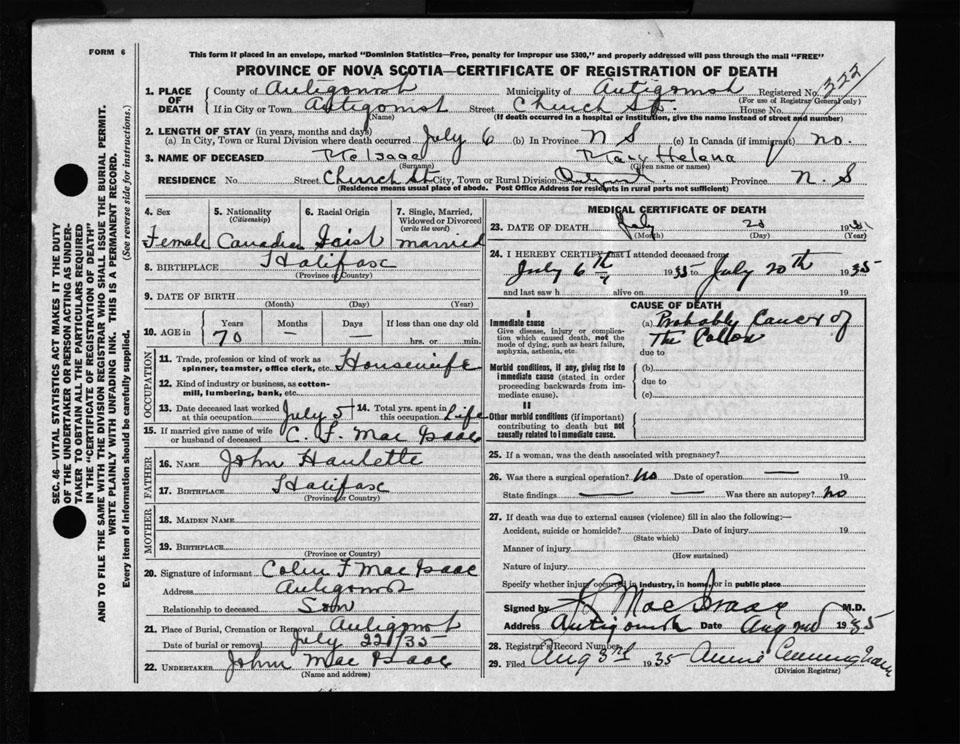 FORM 6
This form if placed in an envelope, marked "Dominion Statistics—Free, penalty for improper use $300," and properly addressed will pass through the mail "FREE"
PROVINCE OF NOVA SCOTIA—CERTIFICATE OF REGISTRATION OF DEATH
1. PLACE OF DEATH
County of Antigonish Municipality of Antigonish Registered No. 322
(For use of Registrar General only)
If in City or Town Antigonish Street Church St. House No.
(Name) (If death occurred in a hospital or institution, give the name instead of street and number)
2. LENGTH OF STAY (in years, months and days)
(a) In City, Town or Rural Division where death occurred July 6 (b) In Province N S (c) In Canada (if immigrant) no.
3. NAME OF DECEASED McIsaac Mary Helena
(Surname) (Given name or names)
RESIDENCE No. Street Church St City, Town or Rural Division Province N. S
(Residence means usual place of abode. Post Office Address for residents in rural parts not sufficient)
4. Sex Female
5. Nationality (Citizenship) Canadian
6. Racial Origin
7. Single, Married, Widowed or Divorced (write the word) married
8. BIRTHPLACE Halifax
(Province or Country)
9. DATE OF BIRTH
(Month) (Day) (Year)
10. AGE in Years Months Days If less than one day old
70 — — hrs. or min.
OCCUPATION
11. Trade, profession or kind of work as spinner, teamster, office clerk, etc. Housewife
12. Kind of industry or business, as cotton-mill, lumbering, bank, etc.
13. Date deceased last worked at this occupation July 5
14. Total yrs. spent in this occupation Life
15. If married give name of wife or husband of deceased C. F. Mac Isaac
FATHER
16. NAME John Haulette
17. BIRTHPLACE Halifax
(Province or Country)
MOTHER
18. MAIDEN NAME
19. BIRTHPLACE
(Province or Country)
20. Signature of informant Colin F Mac Isaac
Address Antigonish
Relationship to deceased Son
21. Place of Burial, Cremation or Removal Antigonish
Date of burial or removal July 22/35
22. UNDERTAKER John Mac Isaac
(Name and address)
MEDICAL CERTIFICATE OF DEATH
23. DATE OF DEATH July 20 193
(Month) (Day) (Year)
24. I HEREBY CERTIFY that I attended deceased from
July 6th 1935 to July 20th 1935
and last saw h alive on 19
CAUSE OF DEATH
I
Immediate cause
Give disease, injury or complication which caused death, not the mode of dying, such as heart failure, asphyxia, asthenia, etc.
(a) Probably Cancer of
The Colon
due to
Morbid conditions, if any, giving rise to immediate cause (stated in order proceeding backwards from immediate cause).
(b)
due to
(c)
II
Other morbid conditions (if important) contributing to death but not causally related to immediate cause.
25. If a woman, was the death associated with pregnancy?
26. Was there a surgical operation? No Date of operation — 19
State findings — — Was there an autopsy? no
27. If death was due to external causes (violence) fill in also the following:—
Accident, suicide or homicide? Date of injury 19
(State which)
Manner of injury
(How sustained)
Nature of injury
Specify whether injury occurred in industry, in home, or in public place
Signed by Mac Isaac M.D.
Address Antigonish Date Aug 2nd 1935
28. Registrar's Record Number
29. Filed Aug 3rd 1935 Annie Cunningham
(Division Registrar)
SEC. 46—VITAL STATISTICS ACT MAKES IT THE DUTY
OF THE UNDERTAKER OR PERSON ACTING AS UNDER-
TAKER TO OBTAIN ALL THE PARTICULARS REQUIRED
IN THE "CERTIFICATE OF REGISTRATION OF DEATH"
AND TO FILE THE SAME WITH THE DIVISION REGISTRAR WHO SHALL ISSUE THE BURIAL PERMIT.
WRITE PLAINLY WITH UNFADING INK. THIS IS A PERMANENT RECORD.
Every item of information should be carefully supplied. (See reverse side for instructions.)